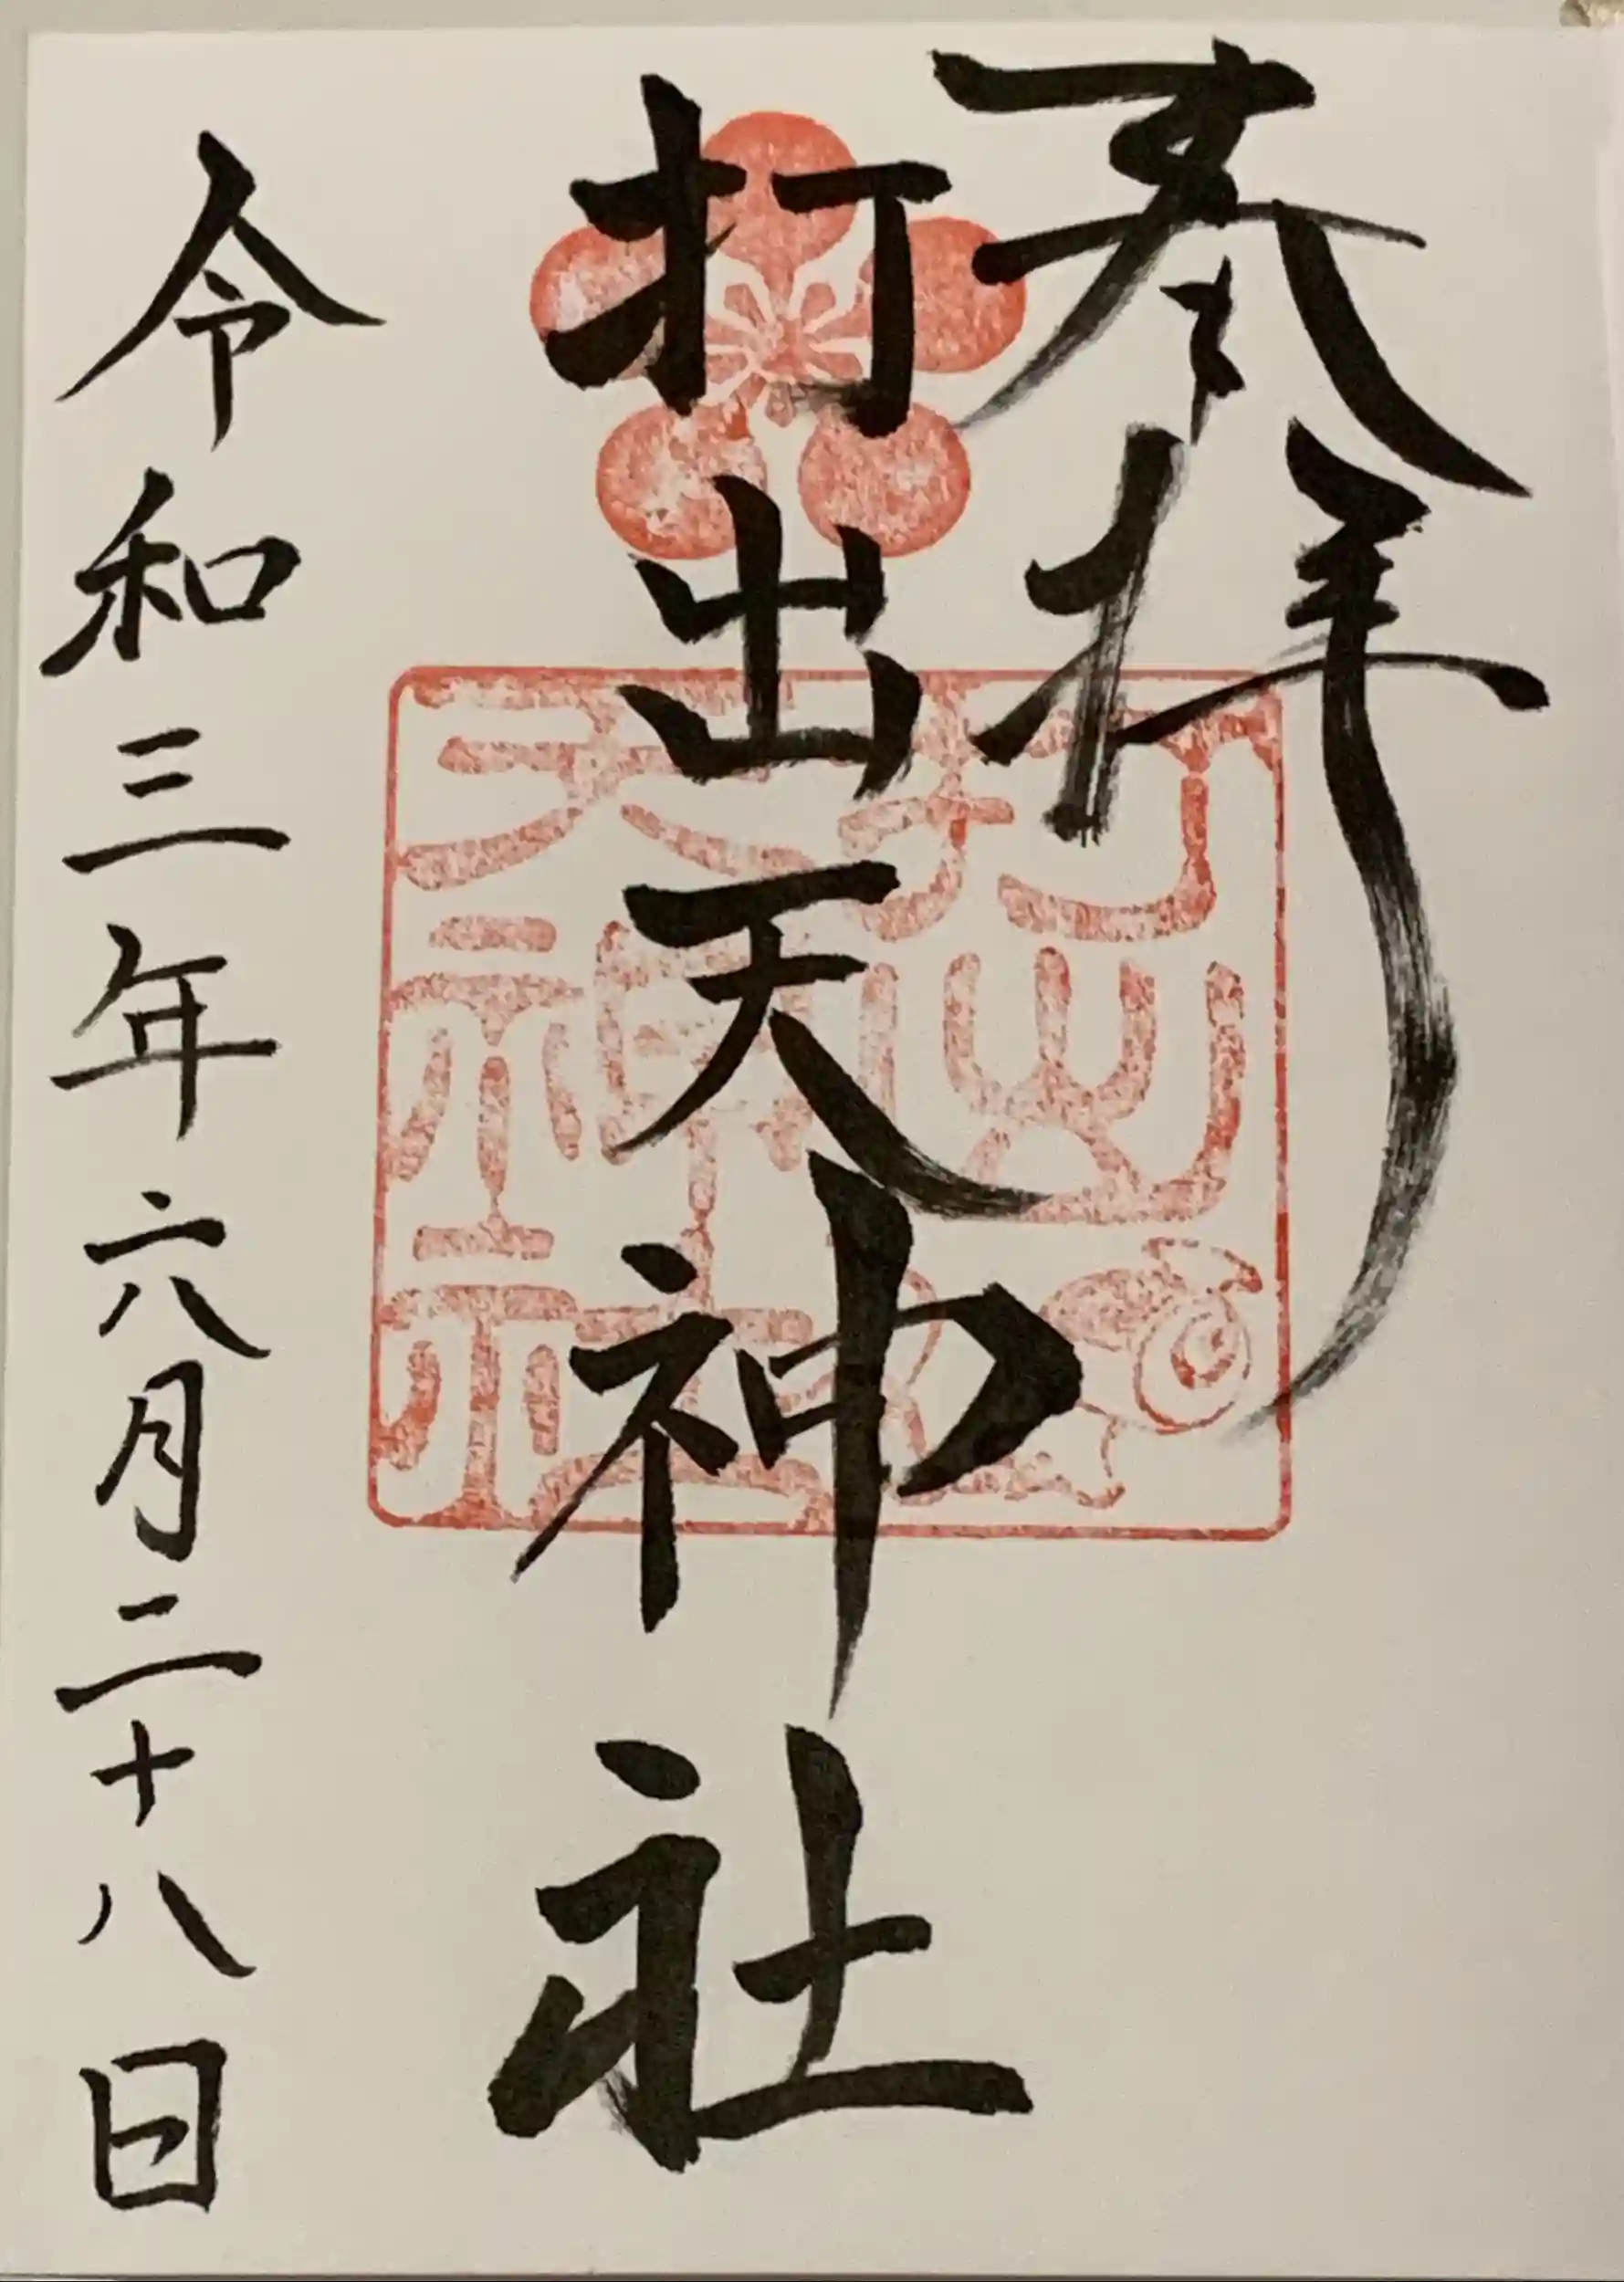 奉拝
打出天神社
打出
天神社
令和三年六月二十八日